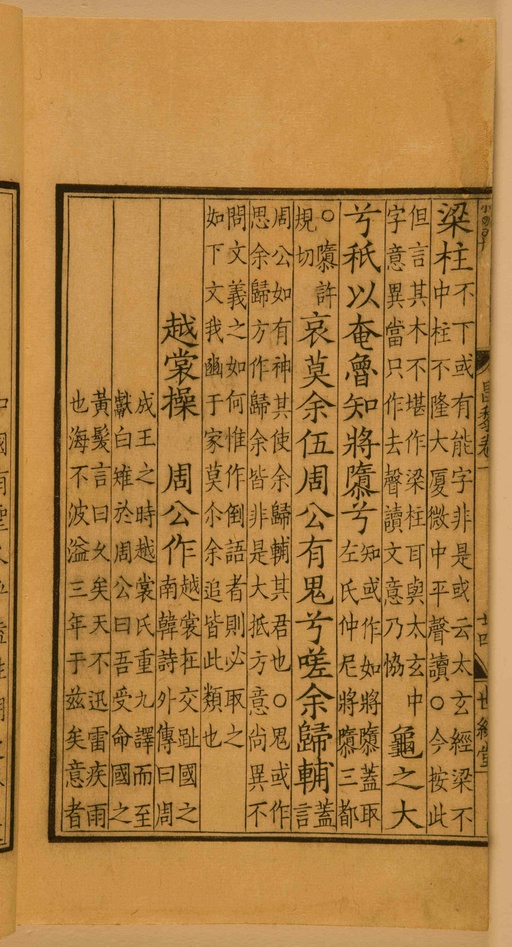 梁柱不下或有能字非是或云太玄經梁不
中柱不隆大厦微中平聲讀○今按此
但言其木不堪作梁柱耳與太玄中
字意異當只作去聲讀文意乃協龜之大
兮秖以奄魯知將隳兮知或作如將隳蓋取
左氏仲尼將隳三都
○隳許
規切哀莫余伍周公有鬼兮嗟余歸輔蓋
言
周公如有神其使余歸輔其君也○鬼或作
思余歸方作歸余皆非是大抵方意尚異不
問文義之如何惟作倒語者則必取之
如下文我幽于家莫尒余追皆此類也
越裳操 周公作越裳在交趾國之
南韓詩外傳曰周
成王之時越裳氏重九譯而至
獻白雉於周公曰吾受命國之
黃髮言曰久矣天不迅雷疾雨
也海不波溢三年于兹矣意者